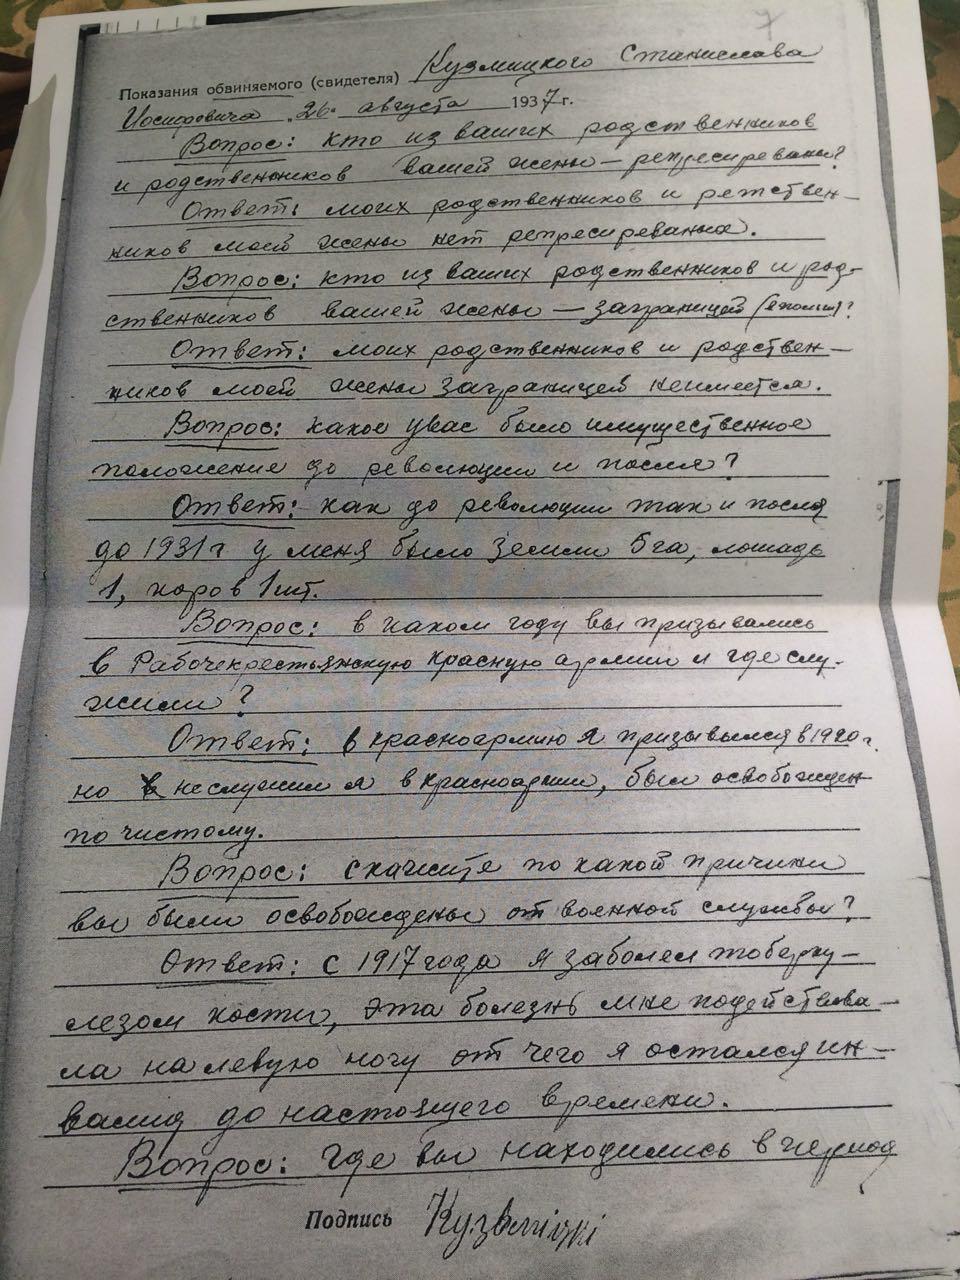 7
Показания обвиняемого (свидетеля) Кузмицкого Станислава
Иосифовича „26" августа 1937 г.
Вопрос: кто из ваших родственников
и родственников вашей жены — репресированы?
Ответ: моих родственников иретствен-
ников моей жены нет репресированых.
Вопрос: кто из ваших родственников и род-
ственников вашей жены — заграницей
Ответ: моих родственников и родствен-
ников моей жены заграницей неимеется.
Вопрос: какое увас было имущественное
положение до революции и после?
Ответ: как до революции так и после
до 1931 г у меня было земли 5 га, лошадь
1, коров 1 шт.
Вопрос: в каком году вы призывались
в Рабочекрестьянскую красную армии и где слу-
жили?
Ответ: в красноармию я призывылся в 1920 г.
но неслужил я в красноармии, был освобожден
по чистому.
Вопрос: скажите по какой причини
вы были освобождены от военной службы?
Ответ: с 1917 года я заболел тоберку-
лезом кости, эта болезнь мне подействова-
ла на левую ногу от чего я остался ин-
валид до настоящего времени.
Вопрос: Где вы находились в период
Подпись